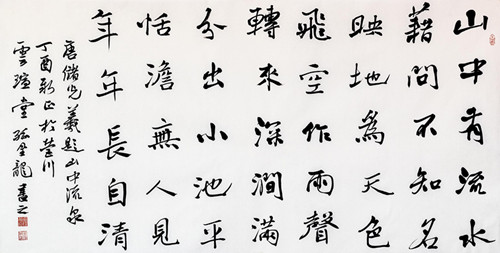 山中有流水
藉問不知名
映地為天色
飛空作雨聲
轉來深澗滿
分出小池平
恬澹無人見
年年長自清
唐儲光羲題山中流泉
丁酉新正於營川
雲瑄堂孫金龍書之